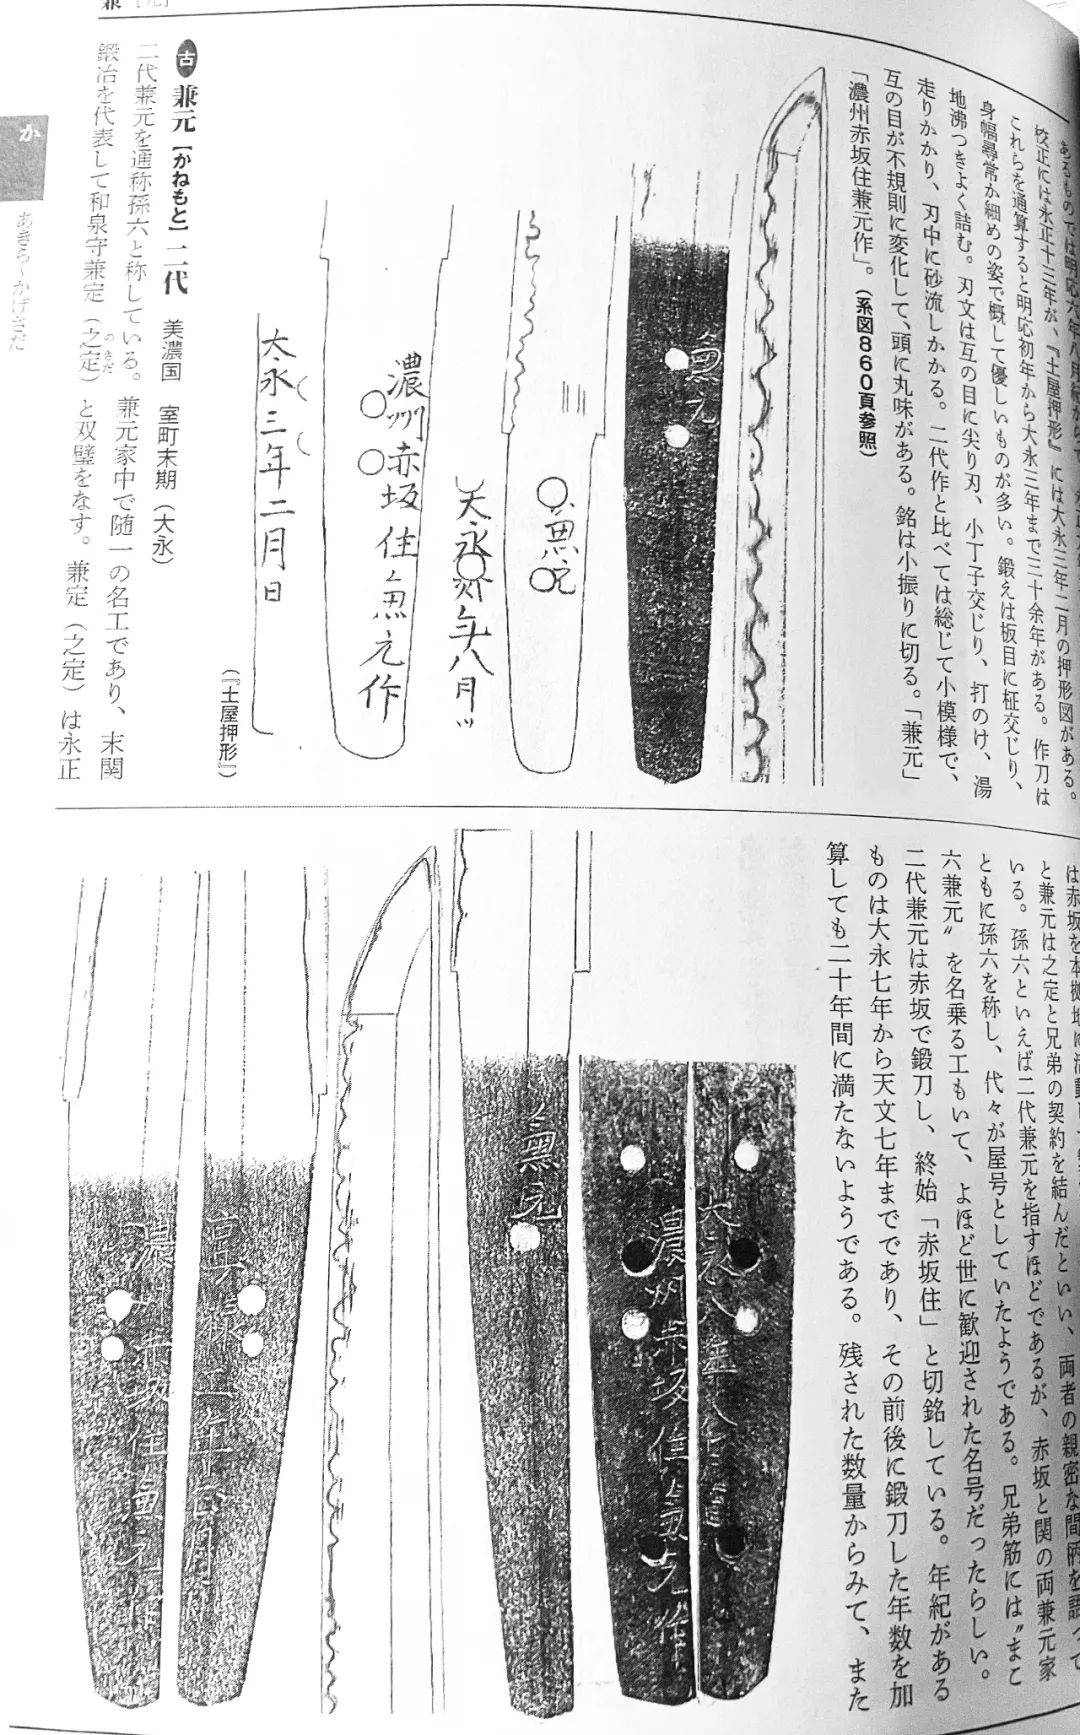 兼
あるものでは明応六年八月紀から
校正には永正十三年が、『土屋押形』には大永三年二月の押形図がある。
これらを通算すると明応初年から大永三年まで三十余年がある。作刀は
身幅尋常か細めの姿で概して優しいものが多い。鍛えは板目に柾交じり、
地沸つきよく詰む。刃文は互の目に尖り刃、小丁子交じり、打のけ、湯
走りかかり、刃中に砂流しかかる。二代作と比べては総じて小模様で、
互の目が不規則に変化して、頭に丸味がある。銘は小振りに切る。「兼元」
「濃州赤坂住兼元作」。（系図860頁参照）
兼元
兼元
大永 年八月
濃州赤坂住兼元作
大永三年二月日
（『土屋押形』）
古 兼元【かねもと】二代 美濃国 室町末期（大永）
二代兼元を通称孫六と称している。兼元家中で随一の名工であり、末関
鍛冶を代表して和泉守兼定（之定）と双璧をなす。兼定（之定）は永正
のさだ
か
あきら〜かげさだ
は赤坂を本拠地に活動し
と兼元は之定と兄弟の契約を結んだといい、両者の親密な間柄を語って
いる。孫六といえば二代兼元を指すほどであるが、赤坂と関の両兼元家
ともに孫六を称し、代々が屋号としていたようである。兄弟筋には〝まご
六兼元〟を名乗る工もいて、よほど世に歓迎された名号だったらしい。
二代兼元は赤坂で鍛刀し、終始「赤坂住」と切銘している。年紀がある
ものは大永七年から天文七年までであり、その前後に鍛刀した年数を加
算しても二十年間に満たないようである。残された数量からみて、また
大永八年八月日
濃州赤坂住兼元作
兼元
濃州赤坂住兼元作